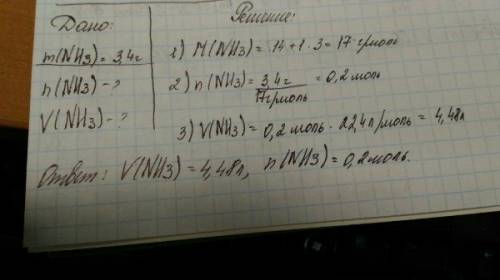 Дано:
Решение:
m(NH3) = 3,4г
n(NH3) - ?
V(NH3) - ?
1) M(NH3) = 14 + 1 · 3 = 17 г/моль
2) n(NH3) = 3,4г / 17г/моль = 0,2 моль
3) V(NH3) = 0,2 моль · 22,4 л/моль = 4,48л
Ответ: V(NH3) = 4,48л, n(NH3) = 0,2 моль.